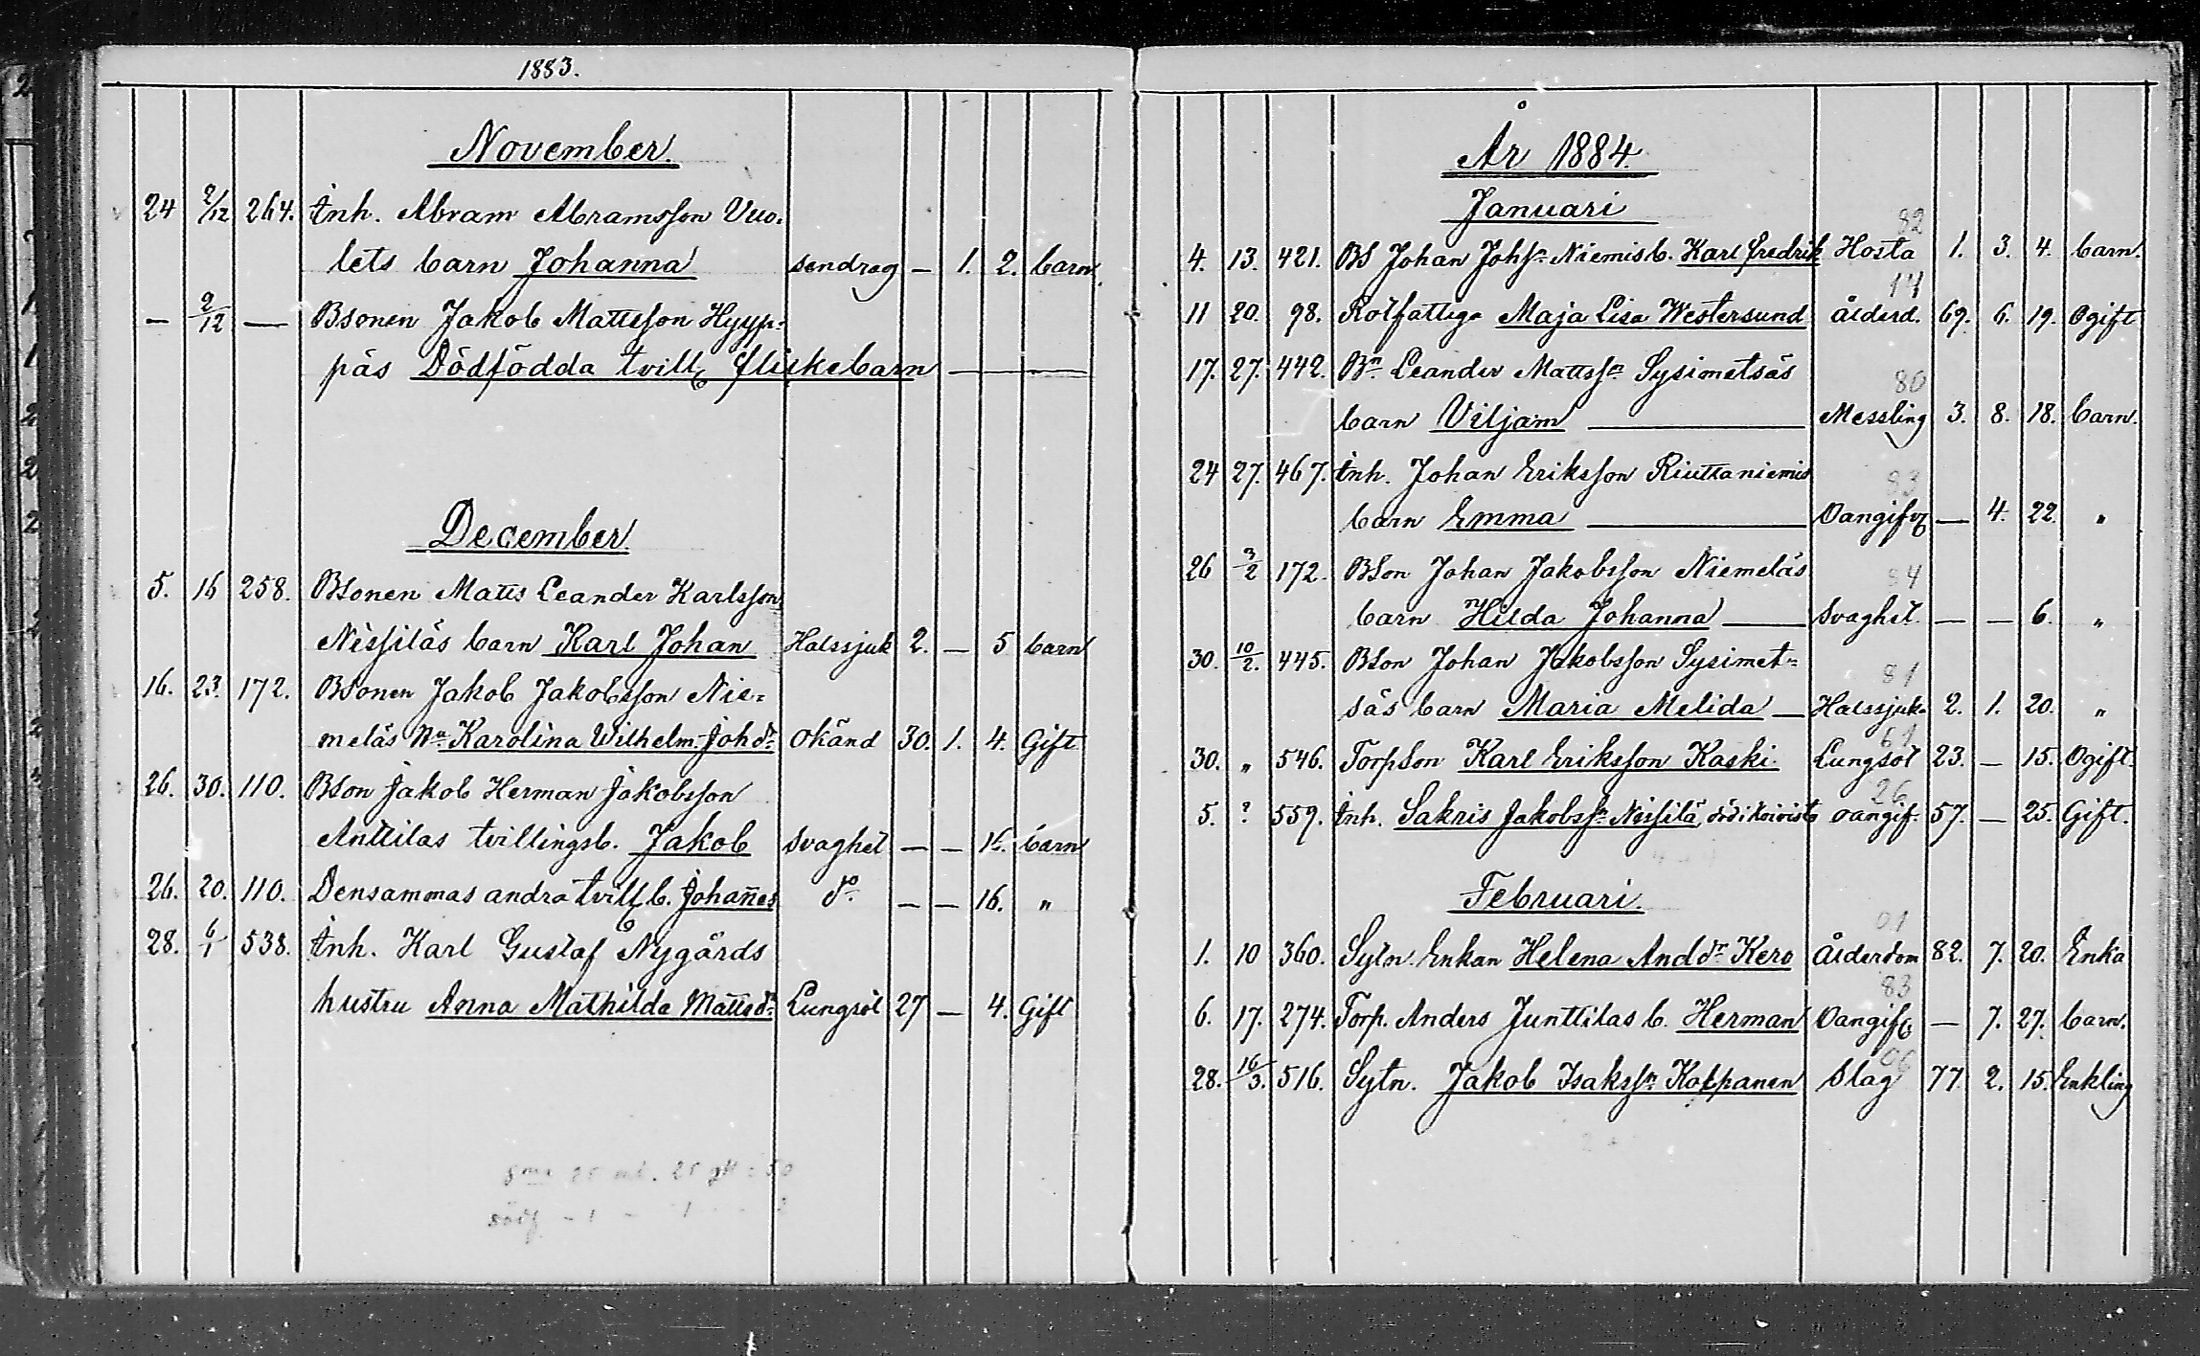 1883.
November.
24 2/12 264. Inh. Abram Abramsson Vuo-
lets barn Johanna sendrag — 1. 2. barn
— 2/12 — Bsonen Jakob Mattsson Hyyp-
päs Dödfödda tvill. flickebarn ———
December.
5. 16 258. Bsonen Matts Leander Karlsson
Nissiläs barn Karl Johan Halssjuk 2. — 5 barn
16. 23. 172. Bsonen Jakob Jakobsson Nie-
meläs Karolina Wilhelm. Johdr. Okänd 30. 1. 4. Gift.
26. 30. 110. Bson Jakob Herman Jakobsson
Anttilas tvillingsb. Jakob Svaghet — — 15. barn
26. 20. 110. Densammas andra tvill. b. Johannes do — — 16. "
28. 6/1 538. Inh. Karl Gustaf Nygårds
hustru Anna Mathilda Mattsdr. Lungsot 27 — 4. Gift
År 1884.
Januari
82
4. 13. 421. BS Johan Johsn Niemis b. Karl Fredrik Hosta 1. 3. 4. barn.
14
11 20. 98. Rotfattiga Maja Lisa Westersund Ålderd. 69. 6. 19. Ogift
17. 27. 442. Bn. Leander Mattssn Sysimetsäs
80
barn Viljam ——— Messling 3. 8. 18. barn.
24 27. 467. Inh. Johan Eriksson Riuttaniemis
83
barn Emma ——— Oangifv. — 4. 22. "
26 3/2 172. BSon Johan Jakobsson Niemeläs
84
barn Hilda Johanna ——— Svaghet. — — 6. "
30. 10/2. 445. BSon Johan Jakobsson Sysimet-
81
säs barn Maria Melida — Halssjuk. 2. 1. 20. "
61
30. " 546. Torpson Karl Eriksson Kaski. Lungsot 23. — 15. Ogift.
26
5. ? 559. Inh. Sakris Jakobssn Nissilä, död i Koivisto oangif. 57. — 25. Gift.
Februari.
01
1. 10 360. Sytn. Enkan Helena Anddr. Kero Ålderdom 82. 7. 20. Enka
83
6. 17. 274. Torp. Anders Junttilas b. Herman Oangif. — 7. 27. barn.
06
28. 16/3. 516. Sytn. Jakob Isakssn Koppanen Slag 77. 2. 15. Enkling